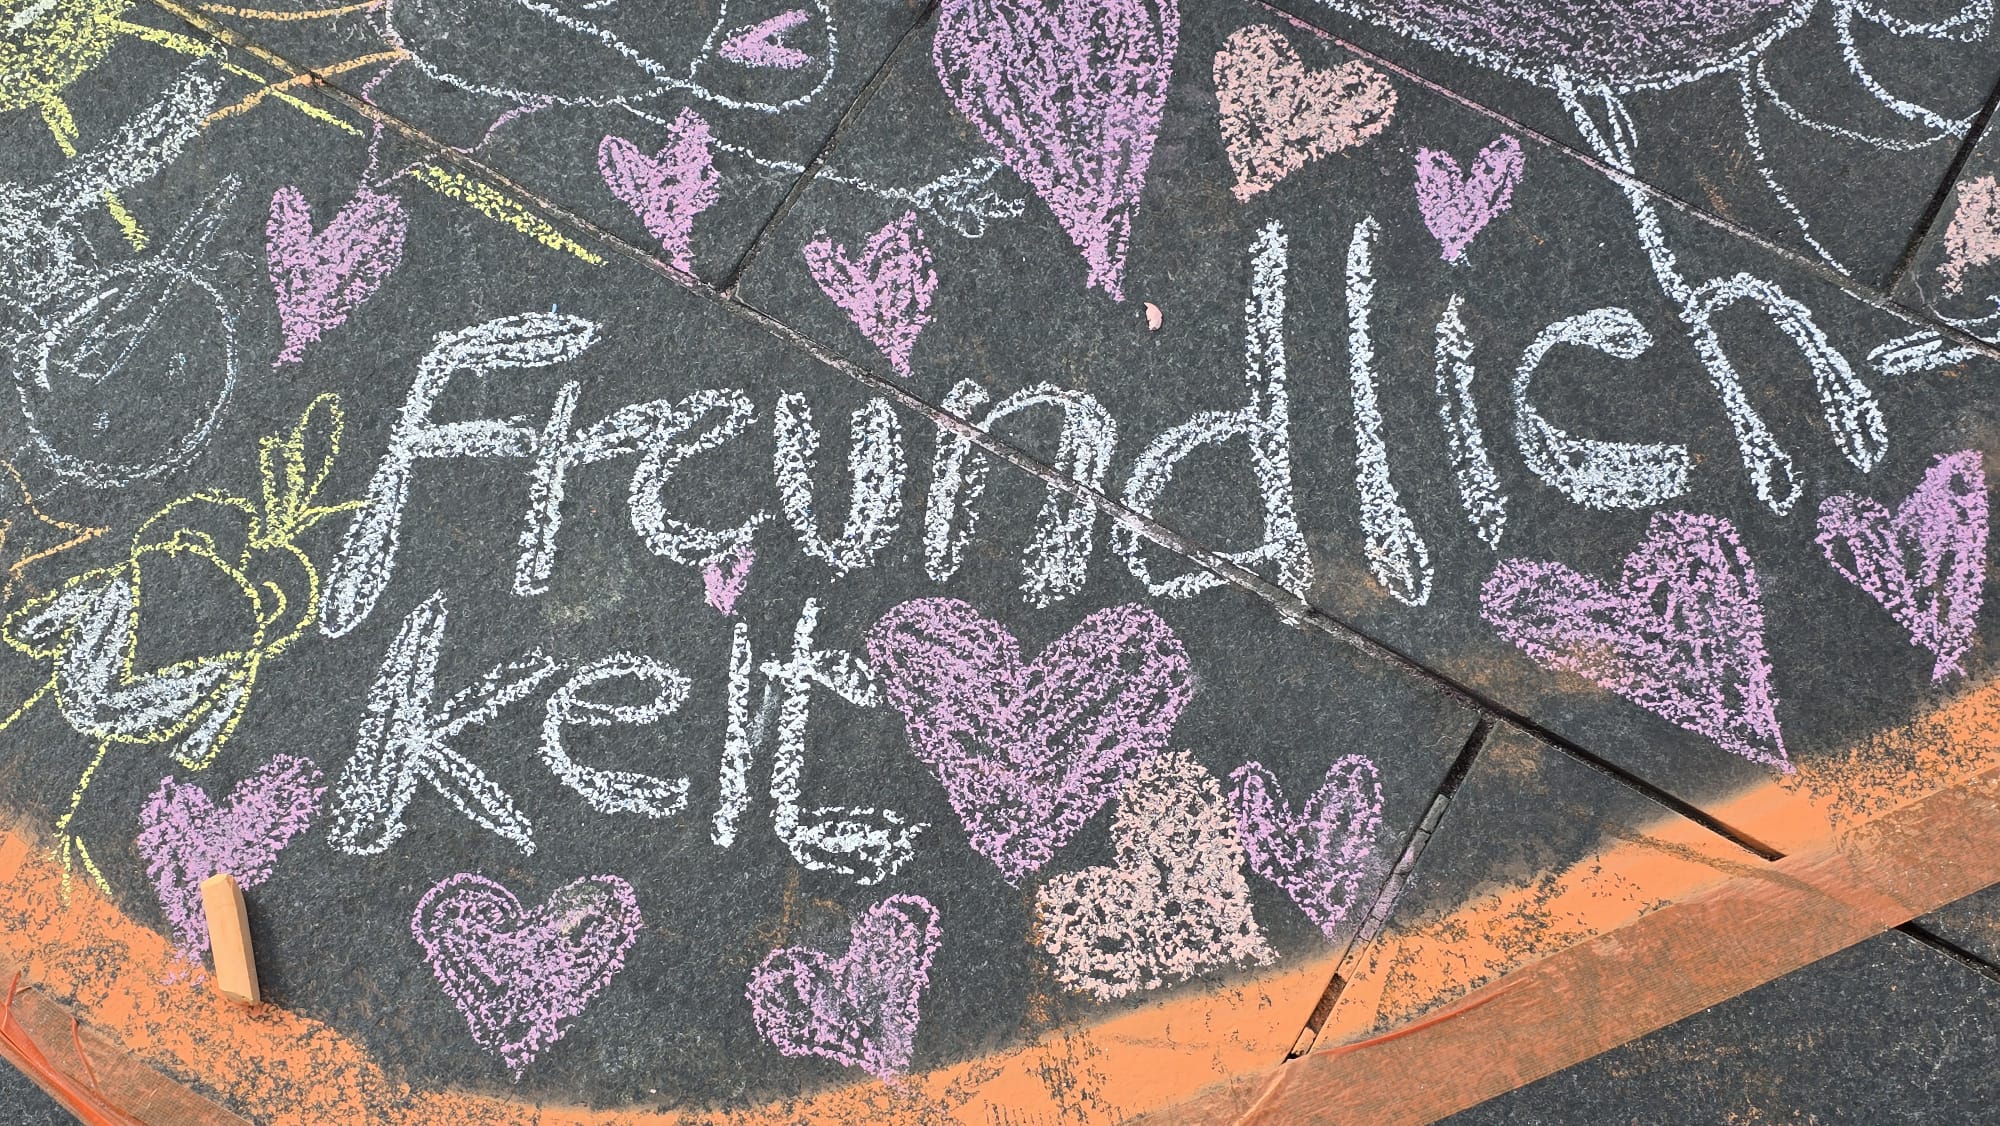 Freundlich-
keit